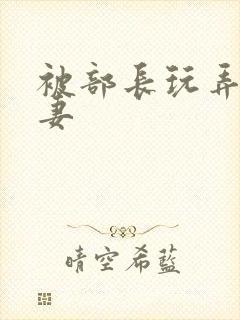 被部長玩弄
妻
晴空希藍